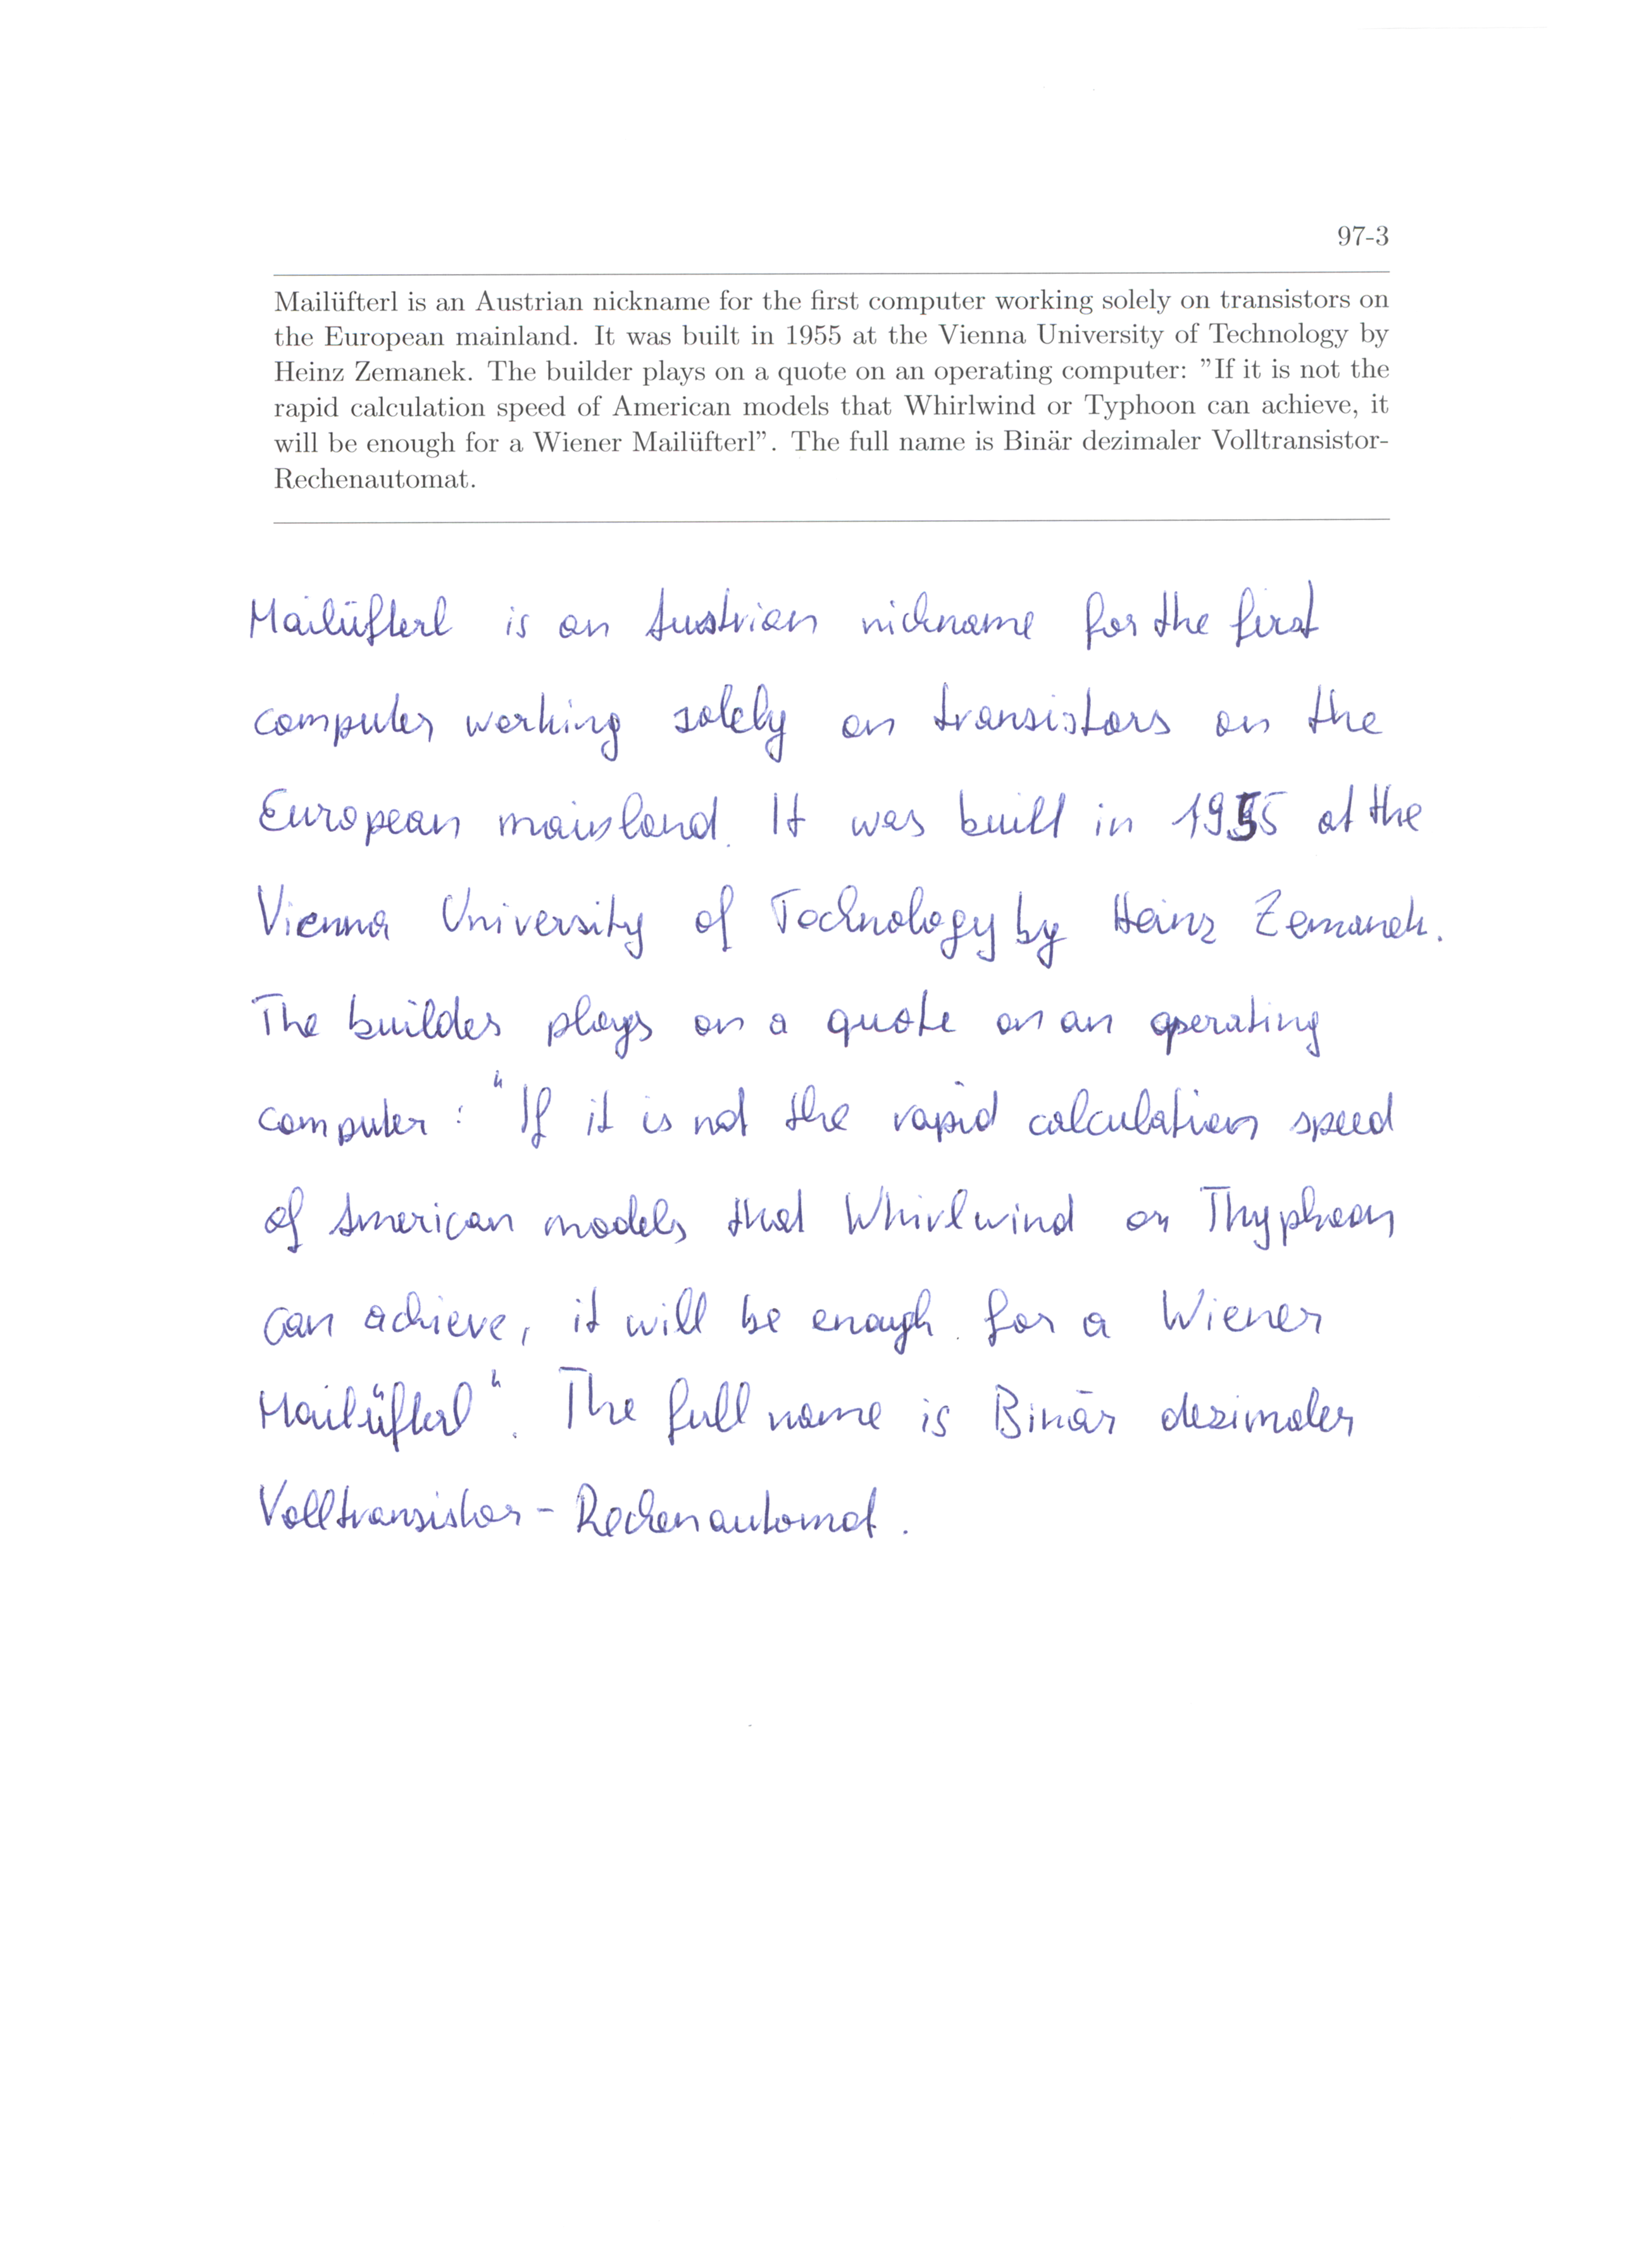 97-3
Mailüfterl is an Austrian nickname for the first computer working solely on transistors on
the European mainland. It was built in 1955 at the Vienna University of Technology by
Heinz Zemanek. The builder plays on a quote on an operating computer: ”If it is not the
rapid calculation speed of American models that Whirlwind or Typhoon can achieve, it
will be enough for a Wiener Mailüfterl”. The full name is Binär dezimaler Volltransistor-
Rechenautomat.
Mailüfterl is an Austrian nickname for the first
computer working solely on transistors on the
European mainland. It was built in 1955 at the
Vienna University of Technology by Heinz Zemanek.
The builder plays on a quote on an operating
computer: "If it is not the rapid calculation speed
of American models that Whirlwind or Thyphoon
can achieve, it will be enough for a Wiener
Mailüfterl". The full name is Binär dezimaler
Volltransistor-Rechenautomat.